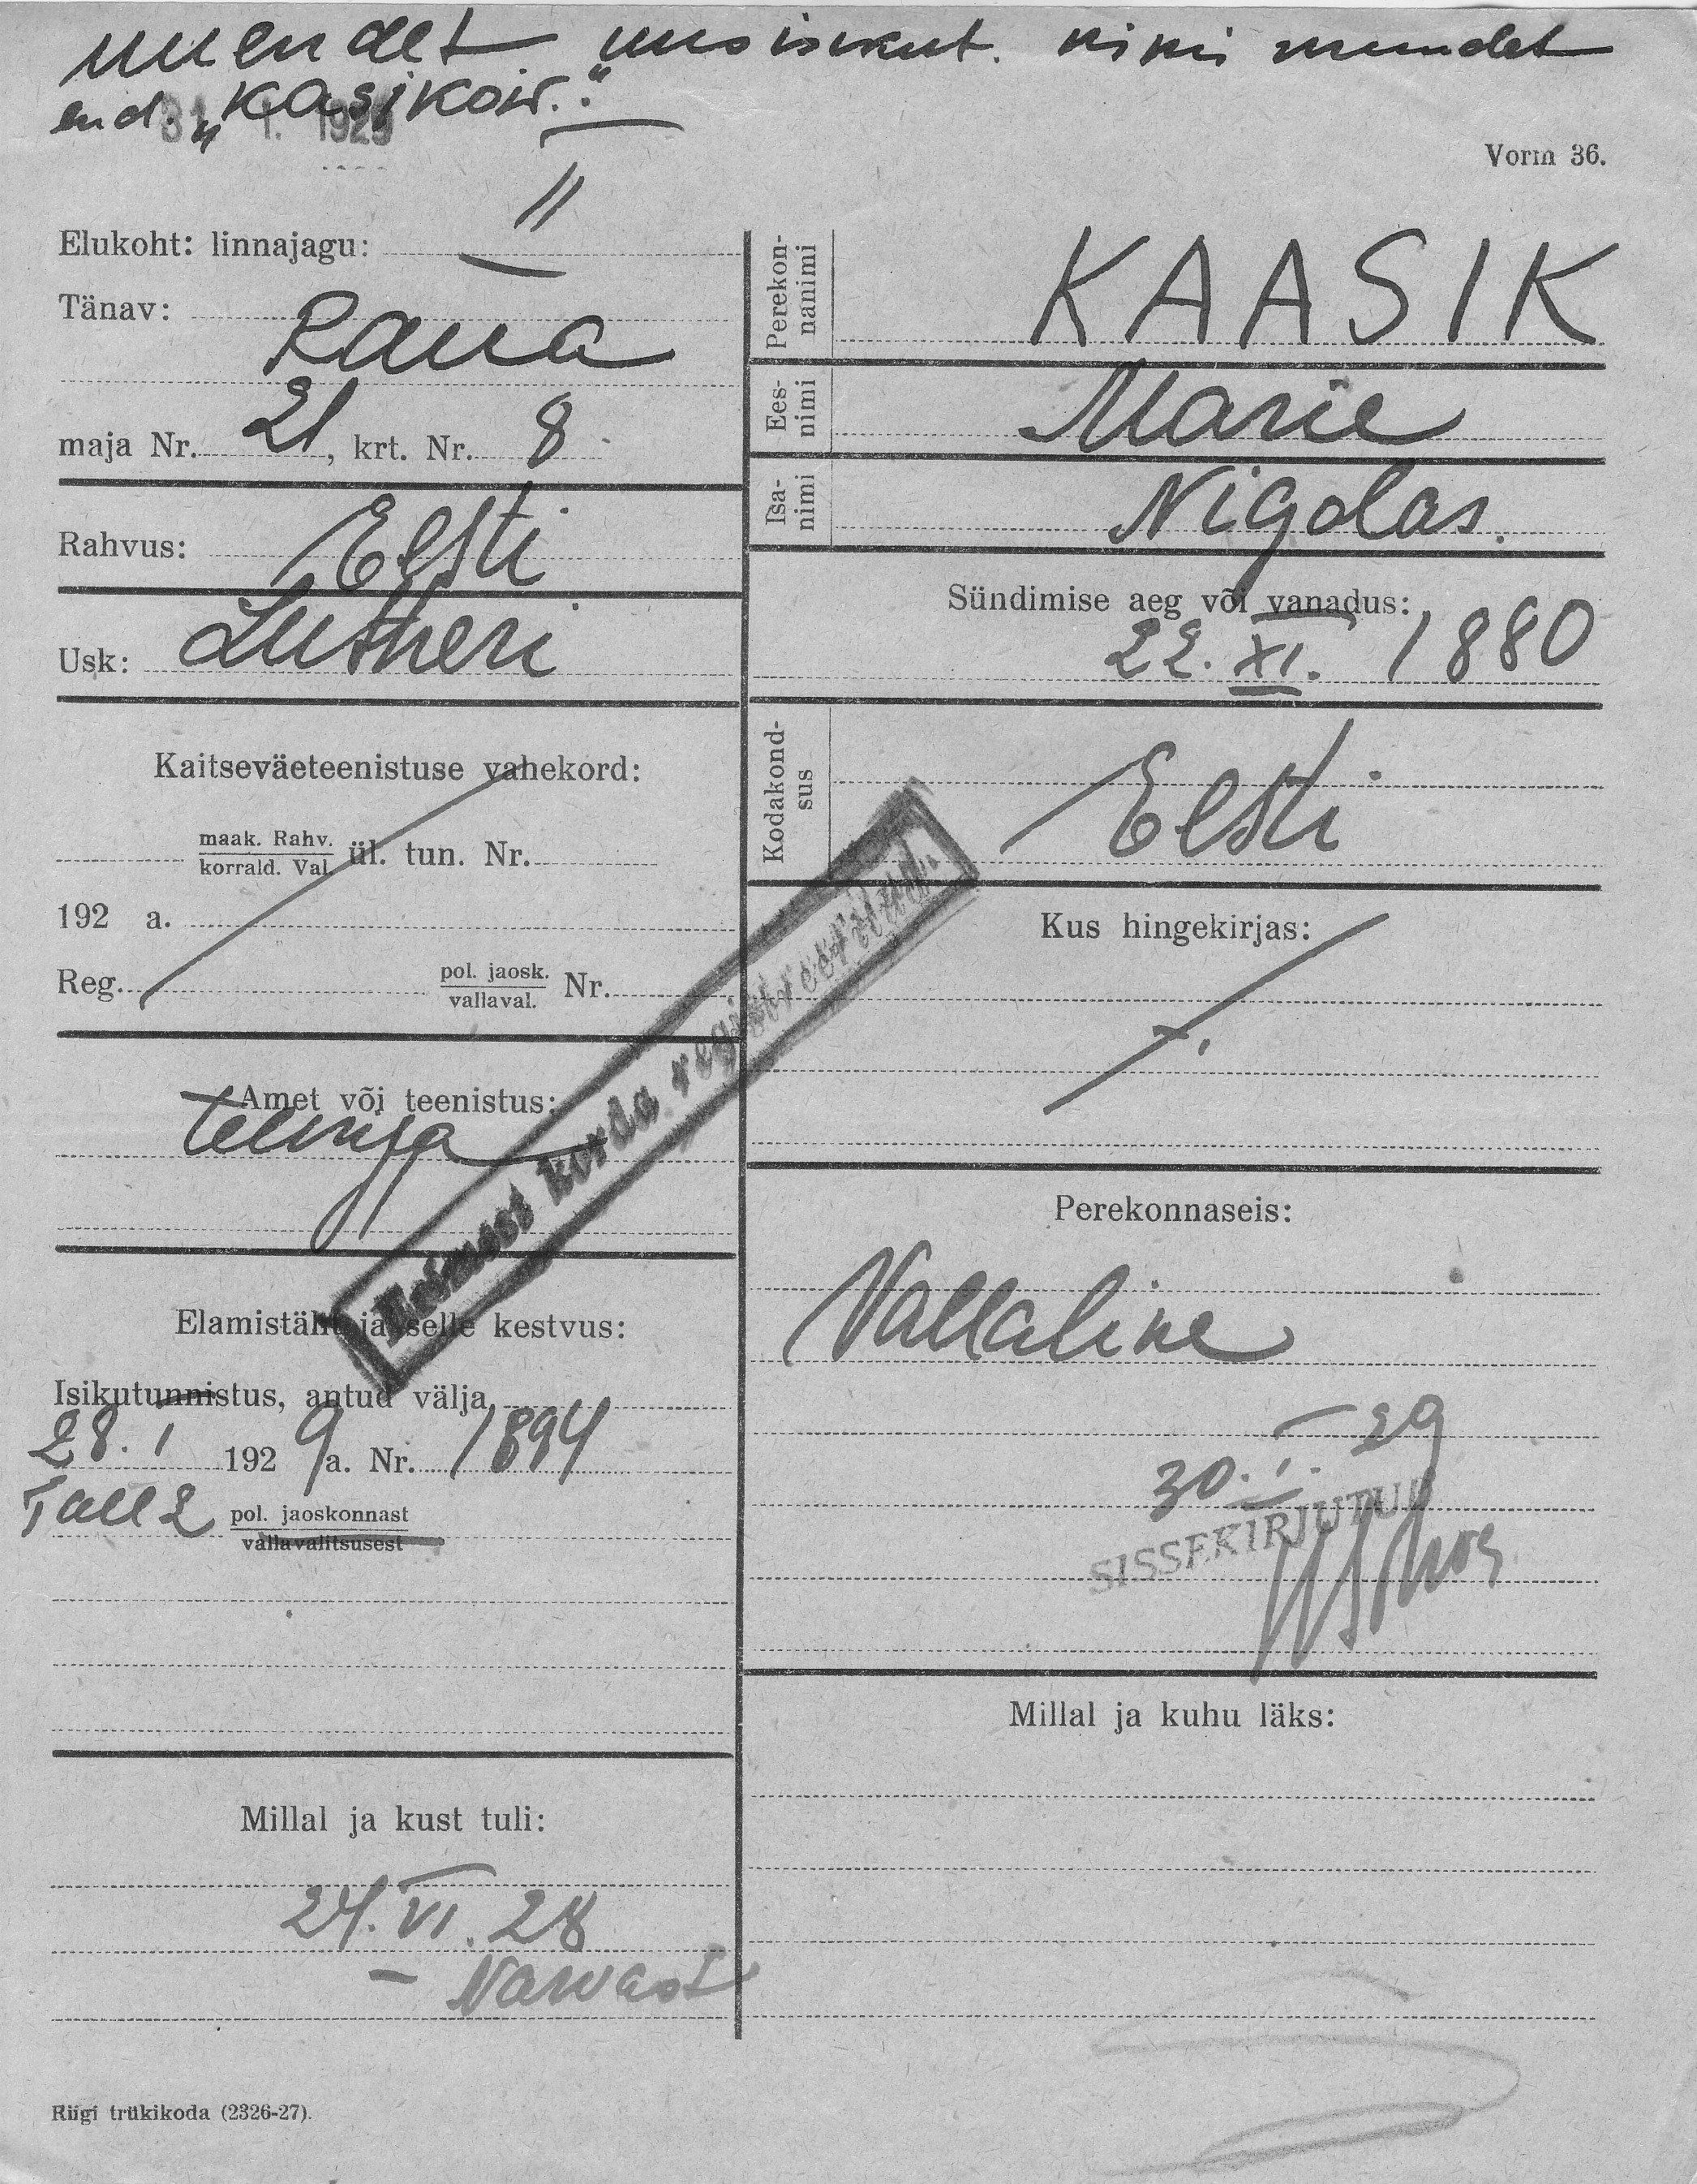 muudet uus isikut. nimi muudet
end. „Kasikow."
31. 1. 1929
Vorm 36.
Elukoht: linnajagu: II
Tänav: Raua
maja Nr. 21, krt. Nr. 8
Rahvus: Eesti
Usk: Lutheri
Kaitseväeteenistuse vahekord:
maak. Rahv.
korrald. Val. ül. tun. Nr.
192 a.
Reg. pol. jaosk.
vallaval. Nr.
Amet või teenistus:
Teenija
Elamistäht ja selle kestvus:
Isikutunnistus, antud välja
28. I 1929 a. Nr. 1894
Tall 2 pol. jaoskonnast
vallavalitsusest
Millal ja kust tuli:
24. VI. 28
- Narvast
Riigi trükikoda (2326-27).
Perekonnanimi KAASIK
Eesnimi Marie
Isanimi Nigolas.
Sündimise aeg või vanadus:
22. XI. 1880
Kodakondsus Eesti
Kus hingekirjas:
Perekonnaseis:
Vallaline
30. I. 29
SISSEKIRJUTUD
Millal ja kuhu läks:
Esimest korda registreeritud.